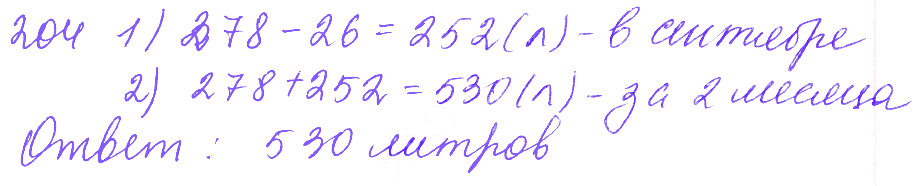 204 1) 278 - 26 = 252 (л) - в сентябре
2) 278 + 252 = 530 (л) - за 2 месяца
Ответ : 530 литров